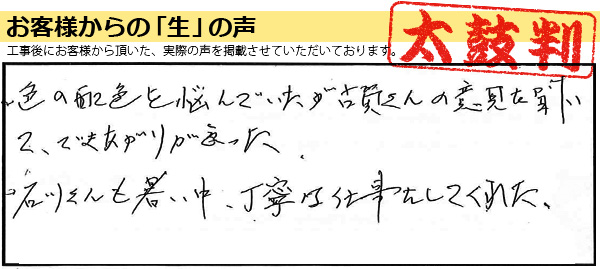 お客様からの「生」の声
太鼓判
工事後にお客様から頂いた、実際の声を掲載させていただいております。
・色の配色を悩んでいたが古賀さんの意見を聞い
て、できあがりが良かった。
・石川さんも暑い中、丁寧な仕事をしてくれた。